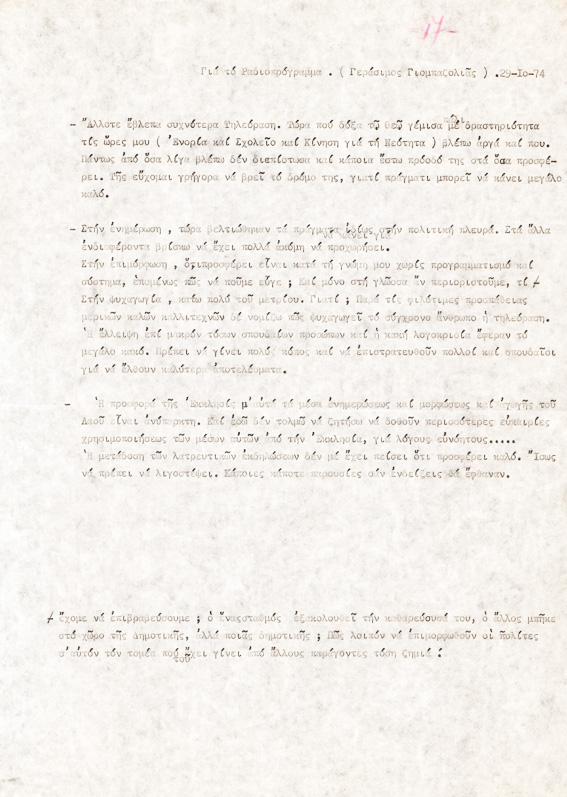 17-
Γιά τό Ραδιοπρόγραμμα . ( Γεράσιμος Γιομπαζολιᾶς ) .29-Ιο-74
- Ἄλλοτε ἔβλεπα συχνότερα Τηλεόραση. Τώρα πού δόξα τῷ θεῷ γέμισα μέ δραστηριότητα
τίς ὧρες μου ( Ἐνορία καί Σχολεῖο καί Κίνηση γιά τή Νεότητα ) βλέπω ἀργά καί που.
Πάντως ἀπό ὅσα λίγα βλέπω δέν διεπίστωσα καί κάποια ἔστω πρόοδό της στά ὅσα προσφέ-
ρει. Τῆς εὔχομαι γρήγορα νά βρεῖ τό δρόμο της, γιατί πράγματι μπορεῖ νά κάνει μεγάλο
καλό.
- Στήν ἐνημέρωση , τώρα βελτιώθηκαν τά πράγματα ἰδίως στήν πολιτική πλευρά. Στά ἄλλα
ἐνδιαφέροντα βρίσκω νά ἔχει πολλά ἀκόμη νά προχωρήσει.
Στήν ἐπιμόρφωση , ὅτιπροσφέρει εἶναι κατά τή γνώμη μου χωρίς προγραμματισμό καί
σύστημα, ἑπομένως πῶς νά ποῦμε εὖγε ; Καί μόνο στή γλῶσσα ἄν περιοριστοῦμε, τί ≠
Στήν ψυχαγωγία , κάτω πολύ τοῦ μετρίου. Γιατί ; Παρά τίς φιλότιμες προσπάθειας
μερικῶν καλῶν καλλιτεχνῶν δέ νομίζω πῶς ψυχαγωγεῖ τό σύγχρονο ἄνθρωπο ἡ τηλεόραση.
Ἡ ἔλλειψη ἐπί μακρόν τόσων σπουδαίων προσώπων καί ἡ κακή λογοκρισία ἔφεραν τό
μεγάλο κακό. Πρέπει νά γίνει πολύς κόπος καί νά ἐπιστρατευθοῦν πολλοί καί σπουδαῖοι
γιά νά ἔλθουν καλύτερα ἀποτελέσματα.
- Ἡ προσφορά τῆς Ἐκκλησίς μ'αὐτά τά μέσα ἐνημερώσεως καί μορφώσεως καί ἀγωγῆς τοῦ
Λαοῦ εἶναι ἀνύπαρκτη. Καί ἐδῶ δέν τολμῶ νά ζητήσω νά δοθοῦν περισσότερες εὐκαιρίες
χρησιμοποιήσεως τῶν μέσων αὐτῶν ἀπό τήν Ἐκκλησία, γιά λόγους εὐνόητους.....
Ἡ μετάδοση τῶν λατρευτικῶν ἐκδηλώσεων δέν μέ ἔχει πείσει ὅτι προσφέρει καλό. Ἴσως
νά πρέπει νά λιγοστέψει. Κάποιες κάποτε παρουσίες σάν ἐνδείξεις θά ἔφθαναν.
≠ ἔχομε νά ἐπιβραβεύσουμε ; ὁ ἕναςσταθμός ἐξακολουθεῖ τήν καθαρεύουσά του, ὁ ἄλλος μπῆκε
στό χῶρο τῆς Δημοτικῆς, ἀλλά ποιᾶς δημοτικῆς ; Πῶς λοιπόν νά ἐπιμορφωθοῦν οἱ πολίτες
σ'αὐτόν τόν τομέα πού ἔχει γίνει ἀπό ἄλλους παράγοντες τόση ζημιά ;
τοῦ